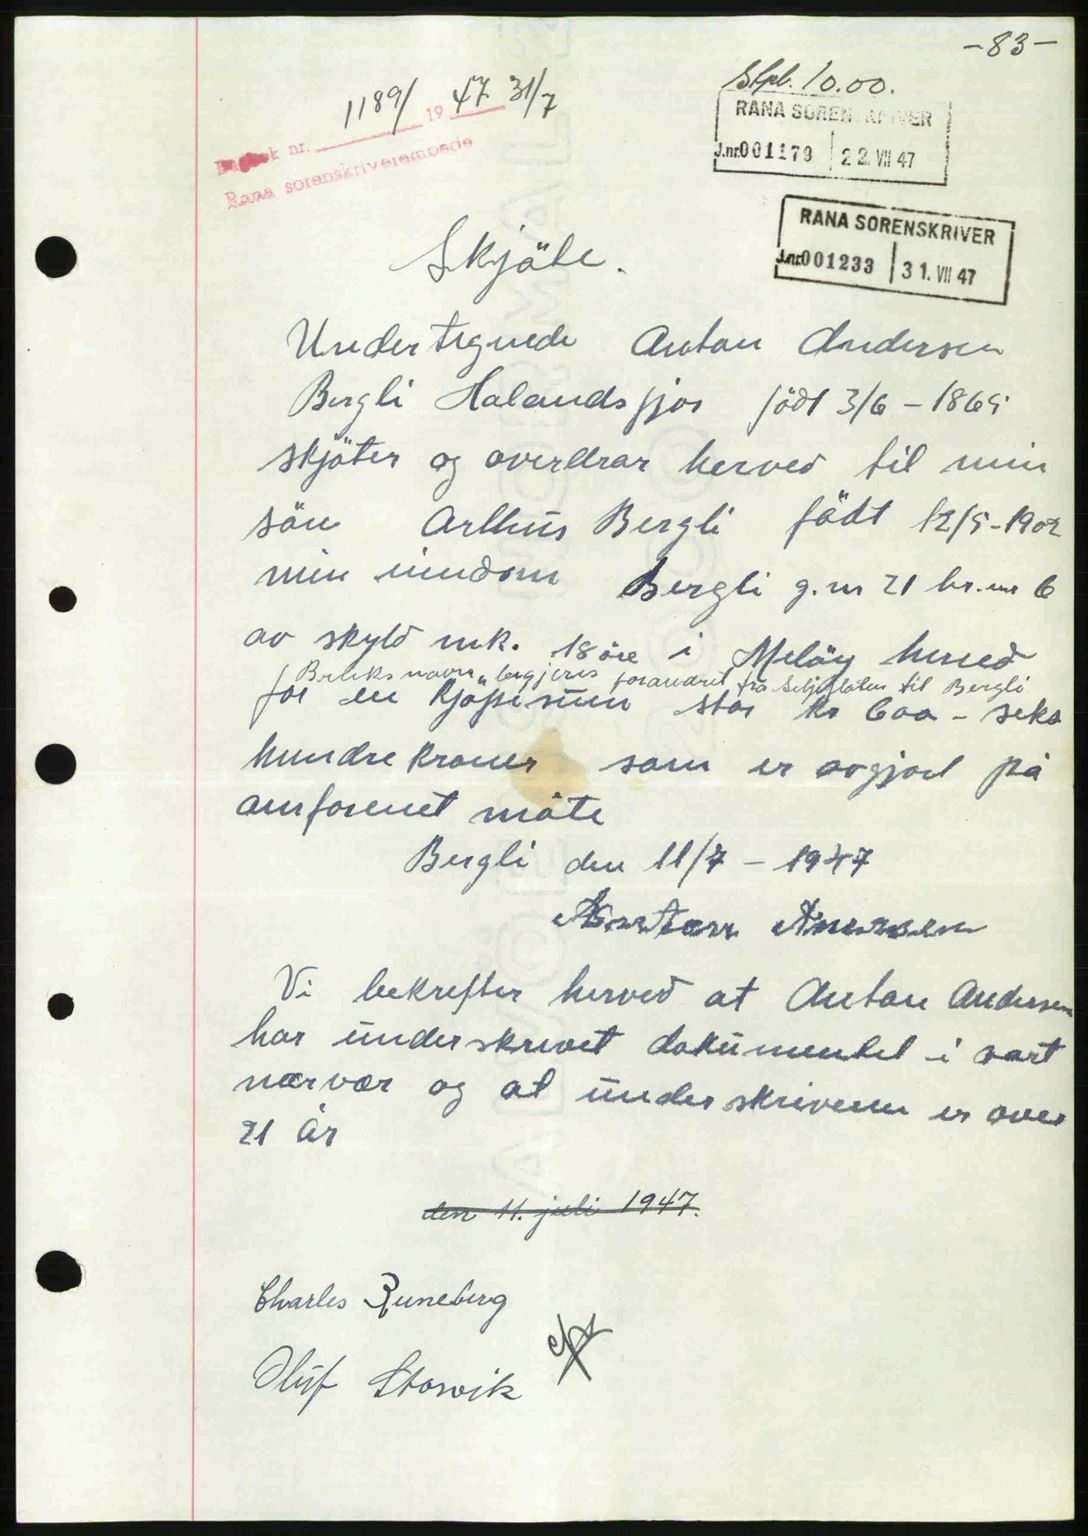 -83-
Stpl. 10.00.
1189/ 1947 31/7
Dagbok nr.
Rana sorenskriverembede
RANA SORENSKRIVER
J.nr. 001179 22. VII 47
RANA SORENSKRIVER
J.nr. 001233 31. VII 47
Skjöte.
Undertegnede Anton Andersen
Bergli Halandsfjor födt 3/6 - 1869
skjöter og overdrar herved til min
sön Arthur Bergli födt 12/5-1902
min eiendom Bergli g.nr 21 br.nr 6
av skyld mk. 18 öre i Melöy herred
Bruksnavn begjeres forandret fra til Bergli
for en kjöpesum stor kr 600 - seks
hundre kroner som er avgjort på
omforenet måte
Bergli den 11/7 - 1947
Anton Andersen
Vi bekrefter herved at Anton Andersen
har underskrevet dokumentet i vart
nærvær og at underskriveren er over
21 år
den 11. juli 1947.
Charles Runeberg
Oluf Storvik